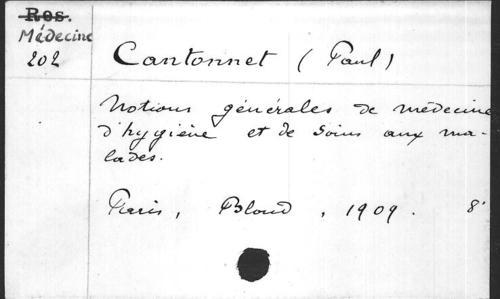 Res.
Médecine
202
Cantonnet (Paul)
Notions générales de médecine
d'hygiène et de soins aux ma-
lades.
Paris, Bloud, 1909. 8°